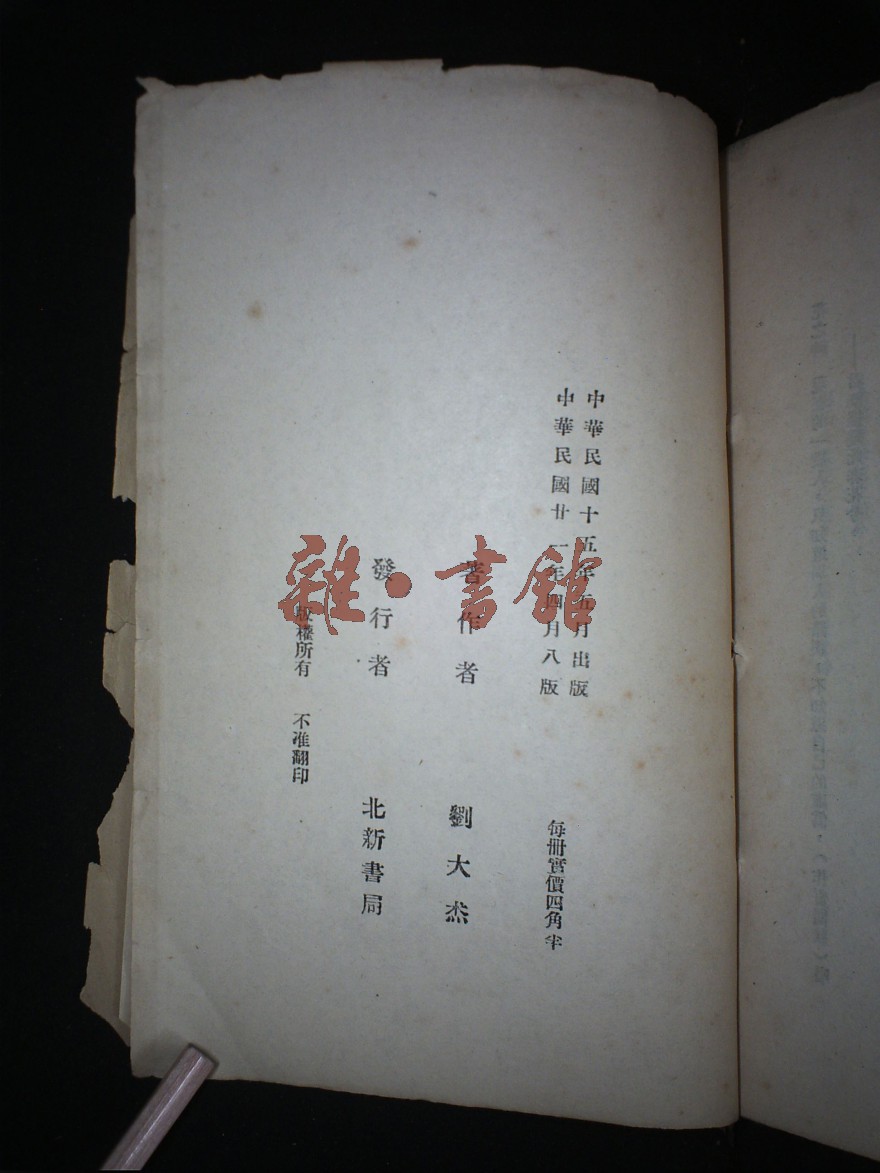 中華民國十五年五月出版
中華民國廿一年四月八版
每冊實價四角半
著作者 劉大杰
發行者 北新書局
版權所有 不准翻印
雜·書館